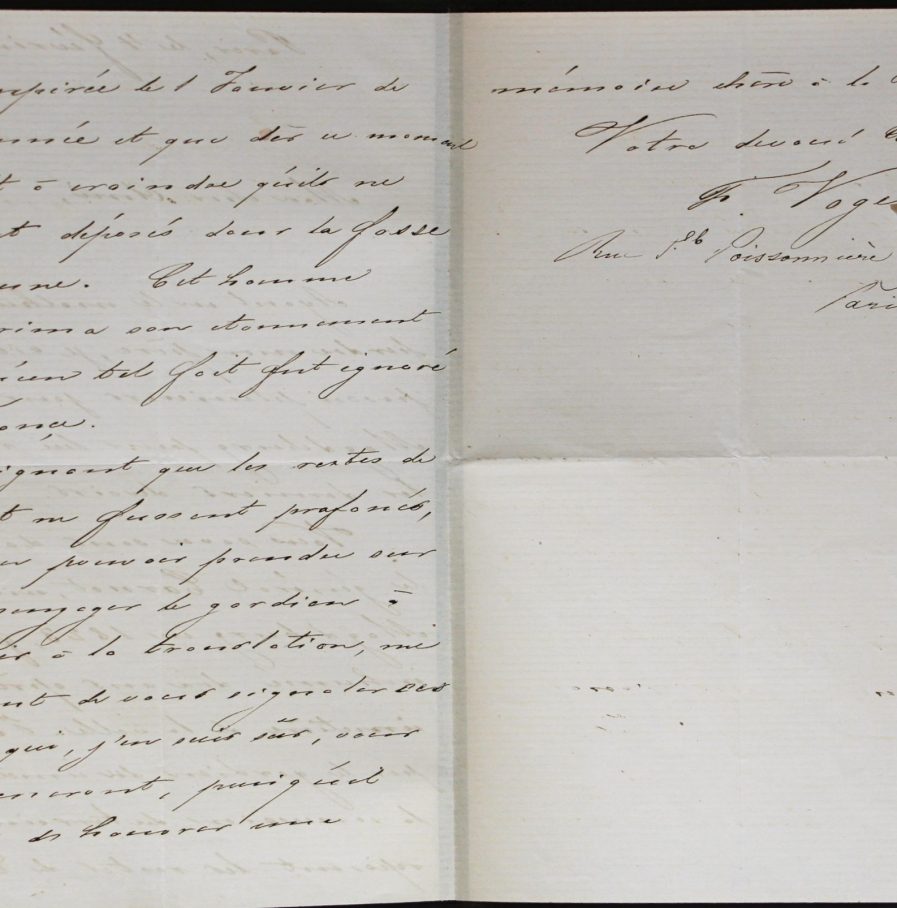 xpirée le 1 Janvier de
nnée et que dès ce moment
t à craindre qu'ils ne
nt déposés dans la fosse
une. Cet homme
rima son étonnement
'un tel fait fut ignoré
ance.
ignant que les restes de
t ne fussent profanés,
pouvoir prendre sur
engager le gardien à
à la translation, me
nt de vous signaler ces
qui, j'en suis sûr, vous
puisqu'il
honorer une
mémoire chère à la
Votre dévoué
F. Voge
Rue Fg Poissonnière
Pari